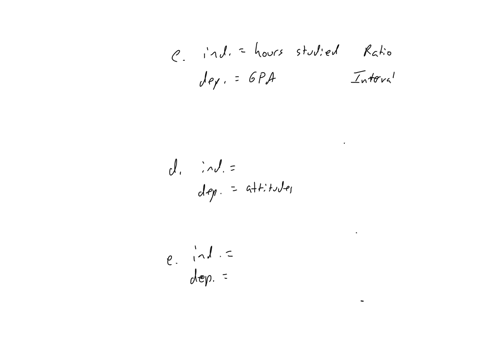 c. ind. = hours studied Ratio
dep. = GPA Interval
d. ind. =
dep. = attitudes
e. ind. =
dep. =